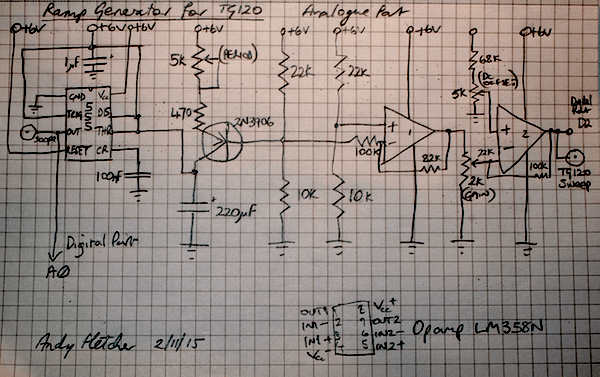 Ramp Generator for TG120 Analogue Part
+6V +6V +6V +6V +6V +6V
1µF
5k
(PERIOD)
22k
22k
68k
(DC OFFSET)
5k
GND Vcc
TRIG DIS
OUT THR
RESET CR
555
470
2N3906
100k
+
-
1
82k
+
-
2
22k
100k
2k
(GAIN)
Digital Part
D2
TG120
Sweep
100nF
+
220µF
10k
10k
Digital Part
A0
OUT1 8 Vcc+
IN1- 2 7 OUT2
IN1+ 3 6 IN2-
Vcc- 4 5 IN2+
Opamp LM358N
Andy Fletcher 2/11/15